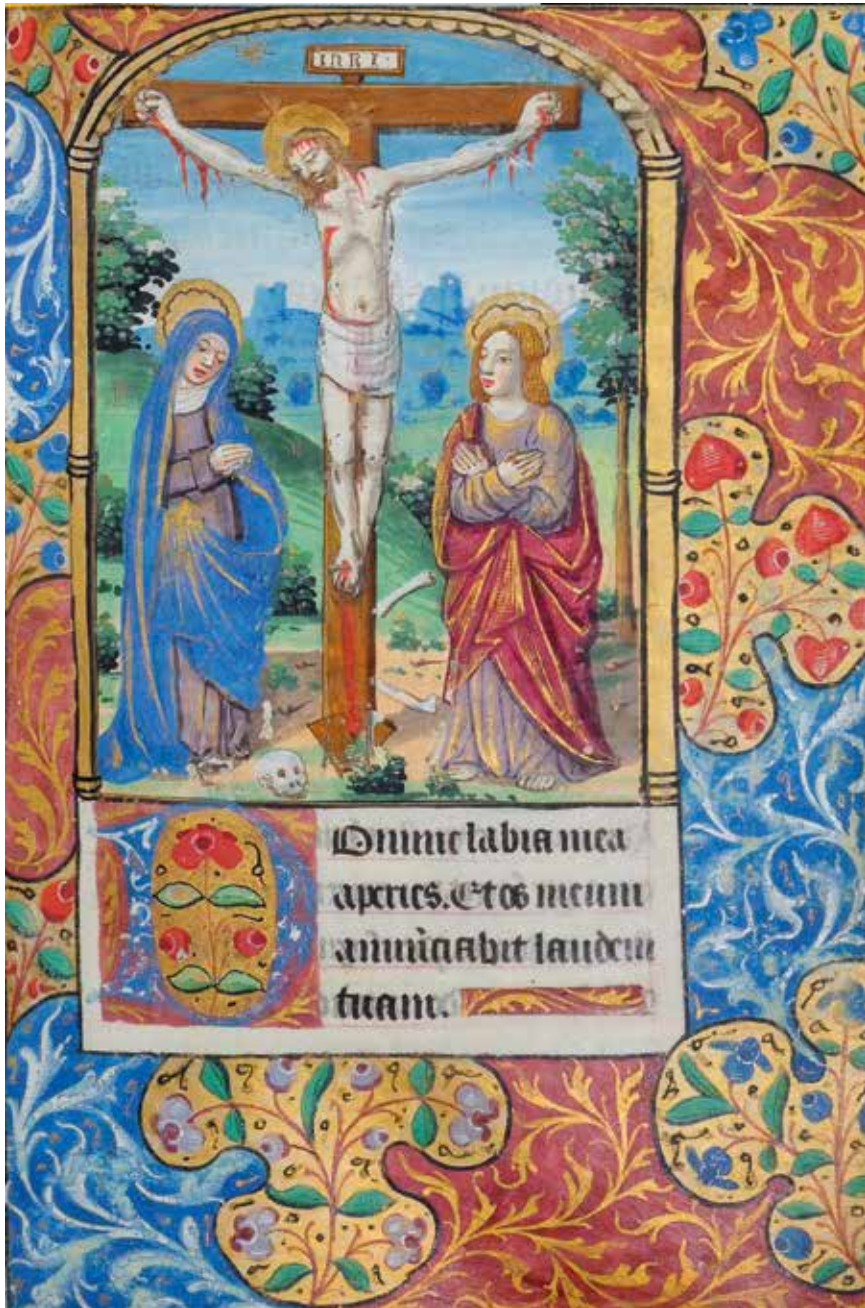 INRI
Domine labia mea
aperies. Et os meum
annūciabit laudem
tuam.